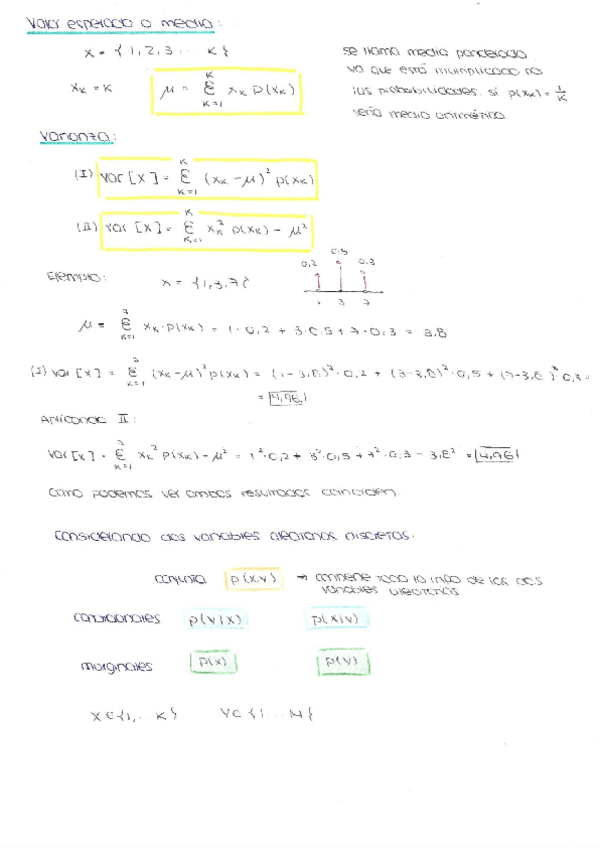 Valor esperado o media:
X = {1, 2, 3 ... K}
se llama media ponderada
ya que está multiplicado por
las probabilidades. si p(xₖ) = 1/K
sería media aritmética.
xₖ = K μ = Σ_{K=1}^{K} xₖ p(xₖ)
Varianza:
(I) Var [X] = Σ_{K=1}^{K} (xₖ - μ)² p(xₖ)
(II) Var [X] = Σ_{K=1}^{K} xₖ² p(xₖ) - μ²
Ejemplo: X = {1, 3, 7}
0,2 0,5 0,3
1 3 7
μ = Σ_{K=1}^{3} xₖ · p(xₖ) = 1 · 0,2 + 3 · 0,5 + 7 · 0,3 = 3,8
(I) Var [X] = Σ_{K=1}^{3} (xₖ - μ)² p(xₖ) = (1 - 3,8)² · 0,2 + (3 - 3,8)² · 0,5 + (7 - 3,8)² 0,3 =
= 4,96
Aplicando II:
Var [X] = Σ_{K=1}^{3} xₖ² p(xₖ) - μ² = 1² · 0,2 + 3² · 0,5 + 7² · 0,3 - 3,8² = 4,96
como podemos ver ambos resultados coinciden.
Considerando dos variables aleatorias discretas.
conjunta p(x,y) → contiene toda la info de las dos
variables aleatorias
condicionales p(y|x) p(x|y)
marginales p(x) p(y)
X ∈ {1, ... K} Y ∈ {1 ... M}